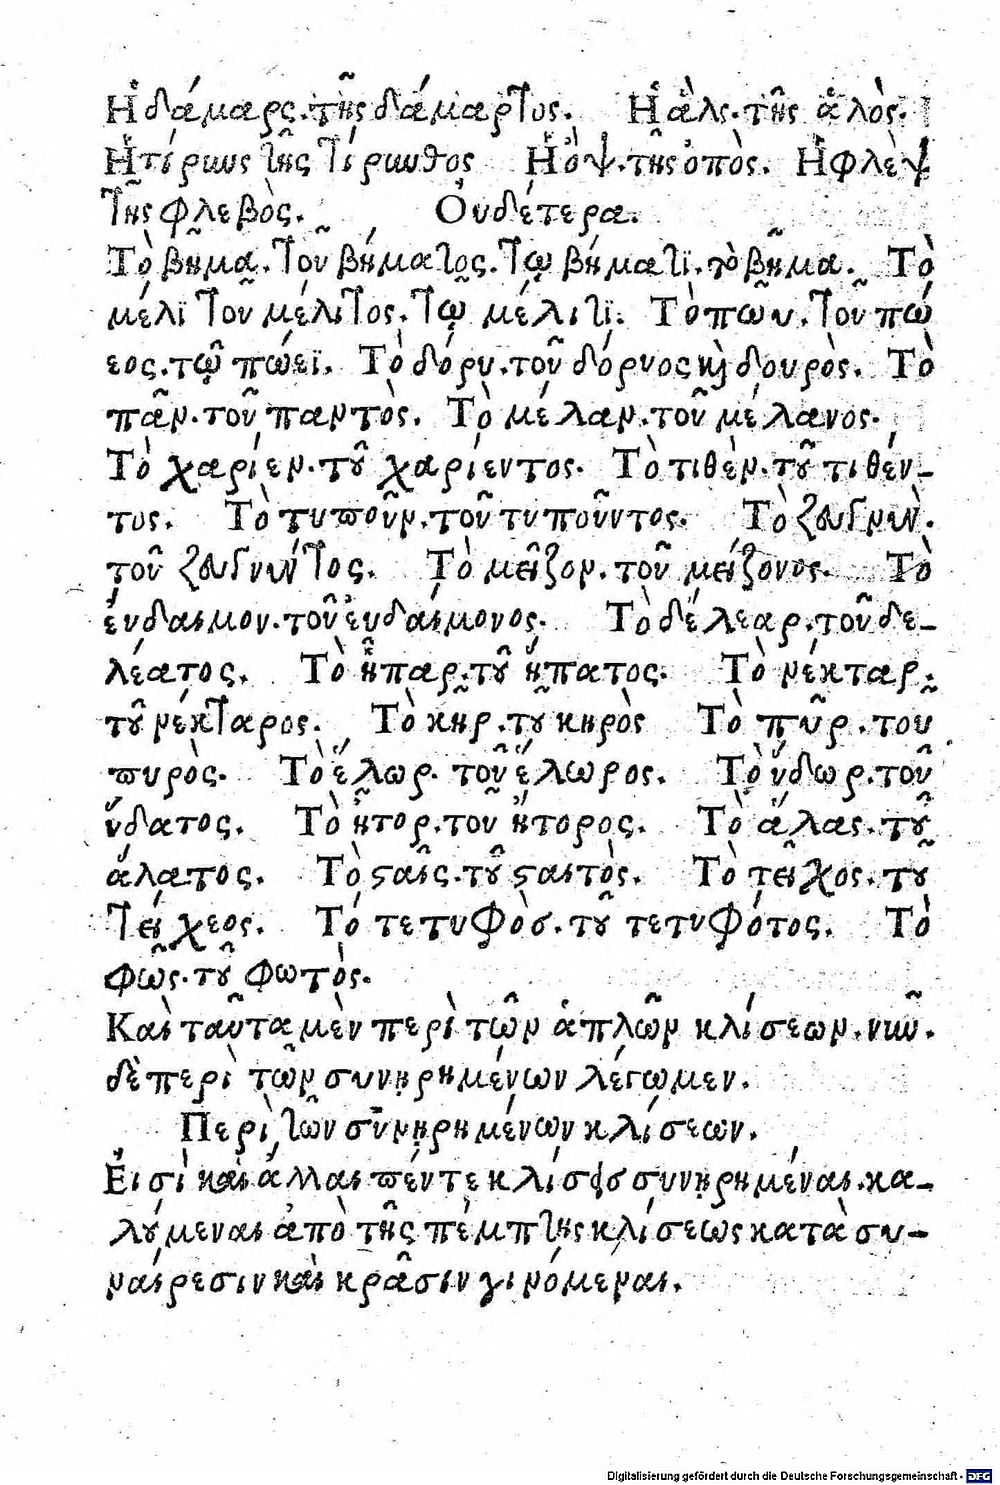 Ἡ δάμαρς. τῆς δάμαρτος. Ἡ ἁλς. τῆς ἁλὸς.
Ἡ τίρυνς τῆς τίρυνθος Ἡ ὄψ. τῆς ὀπὸς. Ἡ φλὲψ
τῆς φλεβὸς. Οὐδέτερα.
Τὸ βῆμα. τοῦ βήματος. τῷ βήματϊ. τὸ βῆμα. Τὸ
μέλϊ τοῦ μέλιτος. τῷ μέλιτϊ. Τὸ πῶυ. τοῦ πώ
εος. τῷ πώεϊ. Τὸ δόρυ. τοῦ δόρυος καὶ δουρὸς. Τὸ
πᾶν. τοῦ παντὸς. Τὸ μέλαν. τοῦ μέλανος.
Τὸ χαρίεν. τοῦ χαρίεντος. Τὸ τιθὲν. τοῦ τιθέν-
τος. Τὸ τυποῦν. τοῦ τυποῦντος. Τὸ ζευγνὺν.
τοῦ ζευγνύντος. Τὸ μεῖζον. τοῦ μείζονος. Τὸ
ἐυδαιμον. τοῦ ἐυδαίμονος. Τὸ δέλεαρ. τοῦ δε-
λέατος. Τὸ ἧπαρ. τοῦ ἥπατος. Τὸ νέκταρ.
τοῦ νέκταρος. Τὸ κῆρ. τοῦ κηρὸς Τὸ πῦρ. τοῦ
πυρὸς. Τὸ ἕλωρ. τοῦ ἕλωρος. Τὸ ὕδωρ. τοῦ
ὕδατος. Τὸ ἦτορ. τοῦ ἤτορος. Τὸ ἅλας. τοῦ
ἅλατος. Τὸ σταῖς. τοῦ σταιτὸς. Τὸ τεῖχος. τοῦ
τείχεος. Τὸ τετυφὸσ. τοῦ τετυφότος. Τὸ
φῶς. τοῦ φωτὸς.
Καὶ ταῦτα μὲν περὶ τῶν ἁπλῶν κλίσεων. νῦν.
δὲ περὶ τῶν συνῃρημένων λέγωμεν.
Περὶ τῶν συνῃρημένων κλίσεων.
Εἰσὶ καὶ ἄλλαι πέντε κλίσεις συνῃρημέναι. κα-
λούμεναι ἀπὸ τῆς πέμπτης κλίσεως κατὰ συ-
ναίρεσιν καὶ κρᾶσιν γινόμεναι.
Digitalisierung gefördert durch die Deutsche Forschungsgemeinschaft - DFG